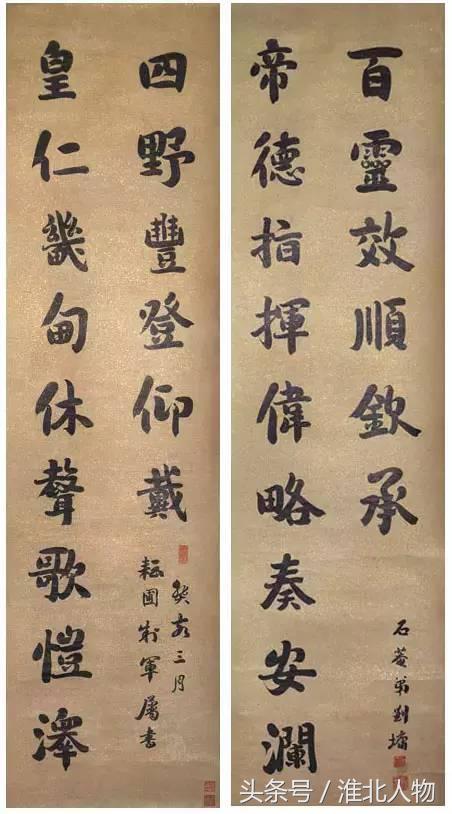 百靈效順欽承
帝德指揮偉略奏安瀾
石菴弟劉墉
四野豐登仰戴
皇仁畿甸休聲歌愷澤
癸亥三月
耘圃制軍屬書
头条号 / 淮北人物